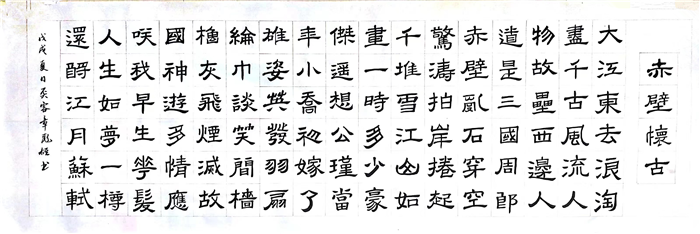 赤壁懷古
大江東去浪淘
盡千古風流人
物故壘西邊人
道是三國周郎
赤壁亂石穿空
驚濤拍岸捲起
千堆雪江山如
畫一時多少豪
傑遥想公瑾當
年小喬初嫁了
雄姿英發羽扇
綸巾談笑間檣
櫓灰飛煙滅故
國神遊多情應
咲我早生華髮
人生如夢一樽
還酹江月蘇軾
戊戌夏日